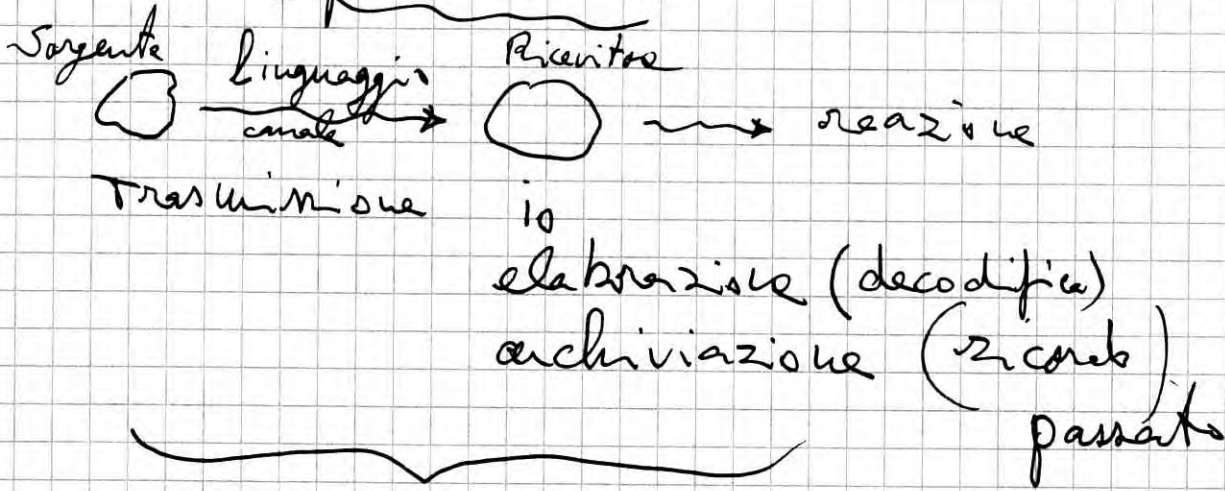 Sorgente linguaggio Ricevitore
canale reazione
Trasmissione io
elaborazione (decodifica)
archiviazione (ricordo)
passato